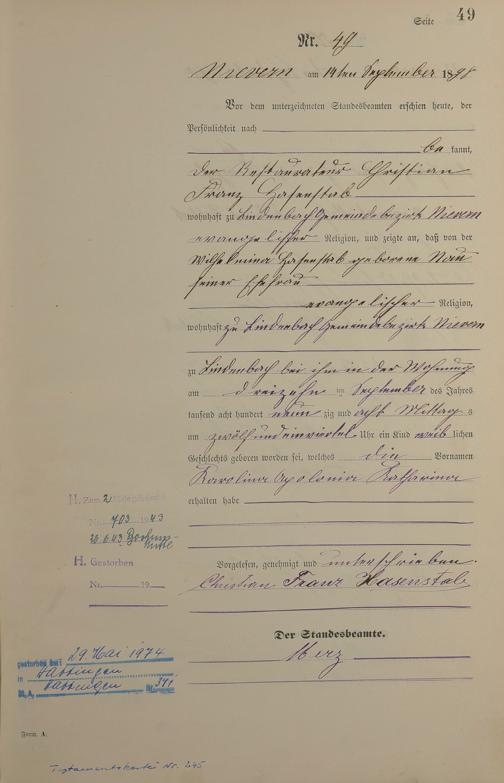 Seite 49
Nr. 49
Nievern am 14ten September 1898
Vor dem unterzeichneten Standesbeamten erschien heute, der
Persönlichkeit nach
be kannt,
der Restaurateur Christian
Franz Hasenstab
wohnhaft zu Lindenbach Gemeindebezirk Nievern
evangelischer Religion, und zeigte an, daß von der
Wilhelmina Hasenstab geborene Nau
seiner Ehefrau
evangelischer Religion,
wohnhaft zu Lindenbach Gemeindebezirk Nievern
zu Lindenbach bei ihm in der Wohnung
am dreizehn ten September des Jahres
tausend acht hundert neun zig und acht Mittag s
um zwölf und einviertel Uhr ein Kind weib lichen
Geschlechts geboren worden sei, welches die Vornamen
Karolina Apolonia Katharina
erhalten habe
H. Zem 2
Nr. 703 1943
26.6.43 Bochum-
H. Gestorben
Nr. 19
Vorgelesen, genehmigt und unterschrieben.
Christian Franz Hasenstab
Der Standesbeamte.
Merz
gestorben bei 29. Mai 1974
in Hattingen
St.A. Hattingen Nr. 341
Form. A.
Testamentskartei Nr. 245